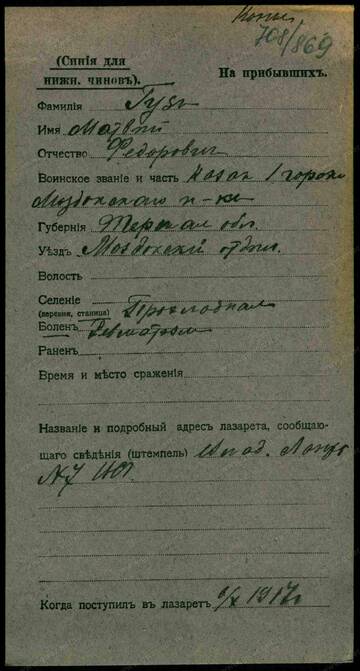 Копія
708/869
(Синія для
нижн. чиновъ).
На прибывшихъ.
Фамилія Гузь
Имя Матвѣй
Отчество Федорович
Воинское званіе и часть Козак 1 горско
Моздокскаго п-ка
Губернія Терская обл.
Уѣздъ Моздокскій отдѣл.
Волость
Селеніе
(деревня, станица) Прохладная
Боленъ Ревматизм
Раненъ
Время и мѣсто сраженія
Названіе и подробный адресъ лазарета, сообщаю-
щаго свѣдѣнія (штемпель)
N 7
Когда поступилъ въ лазаретъ 1917г